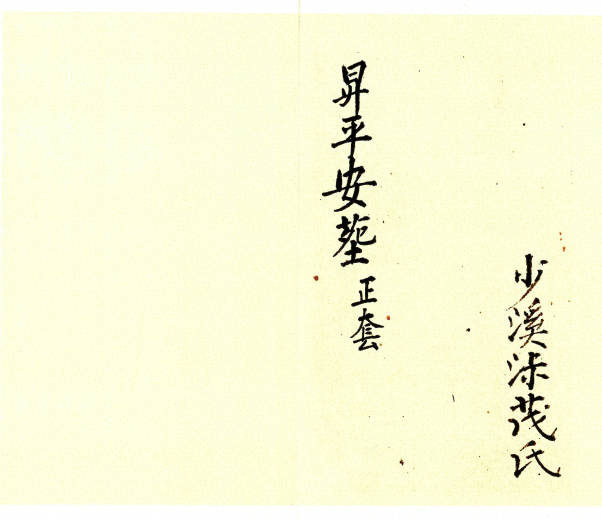 少溪沐茂氏
昇平安塟 正套